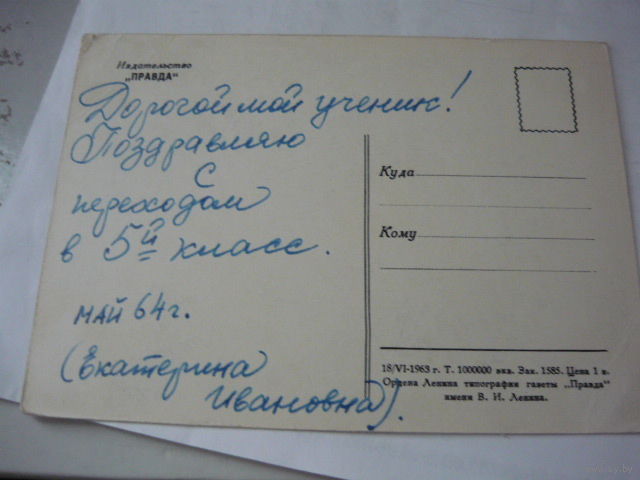 Издательство
„ПРАВДА“
Дорогой мой ученик!
Поздравляю
с
переходом
в 5й класс.
май 64 г.
(Екатерина
Ивановна).
Куда
Кому
18/VI-1963 г. Т. 1000000 экз. Зак. 1585. Цена 1 к.
Ордена Ленина типография газеты „Правда“
имени В. И. Ленина.